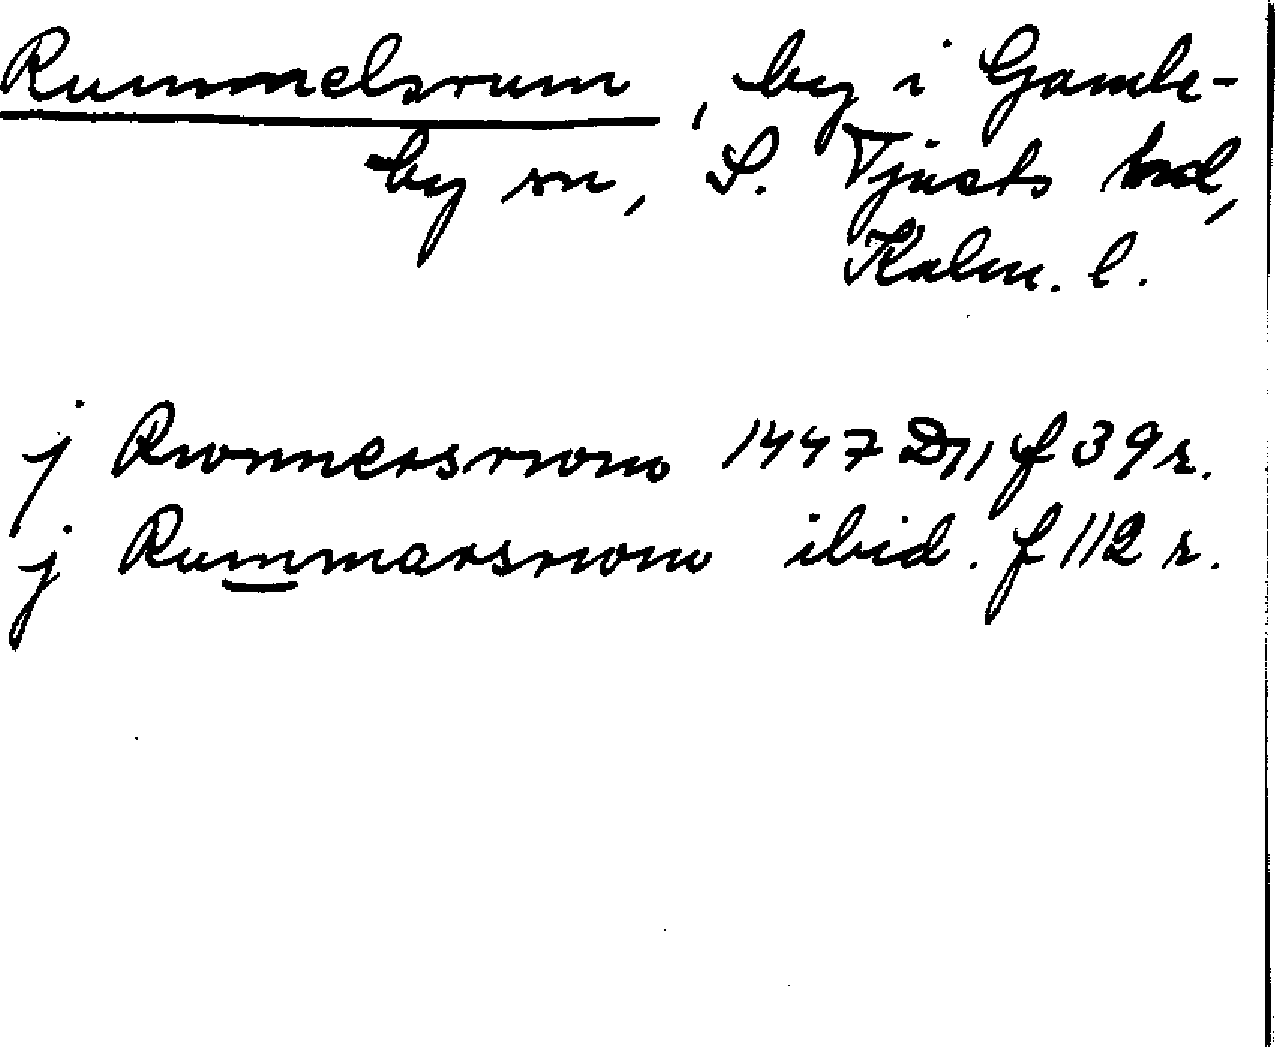 Rummelsrum, by i Gamle-
by sn, S. Tjusts hd,
Kalm. l.
j Rwmmersrwm 1447 D11 f 39 r.
j Rummarsrwm ibid. f 112 r.